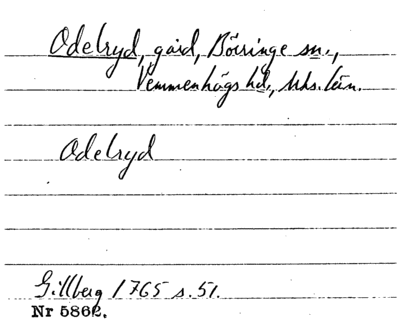 Odelryd, gård, Börringe sn.,
Vemmenhögs hd., Mhs. län.
Odelryd
Gillberg 1765 s. 51.
Nr 5862.